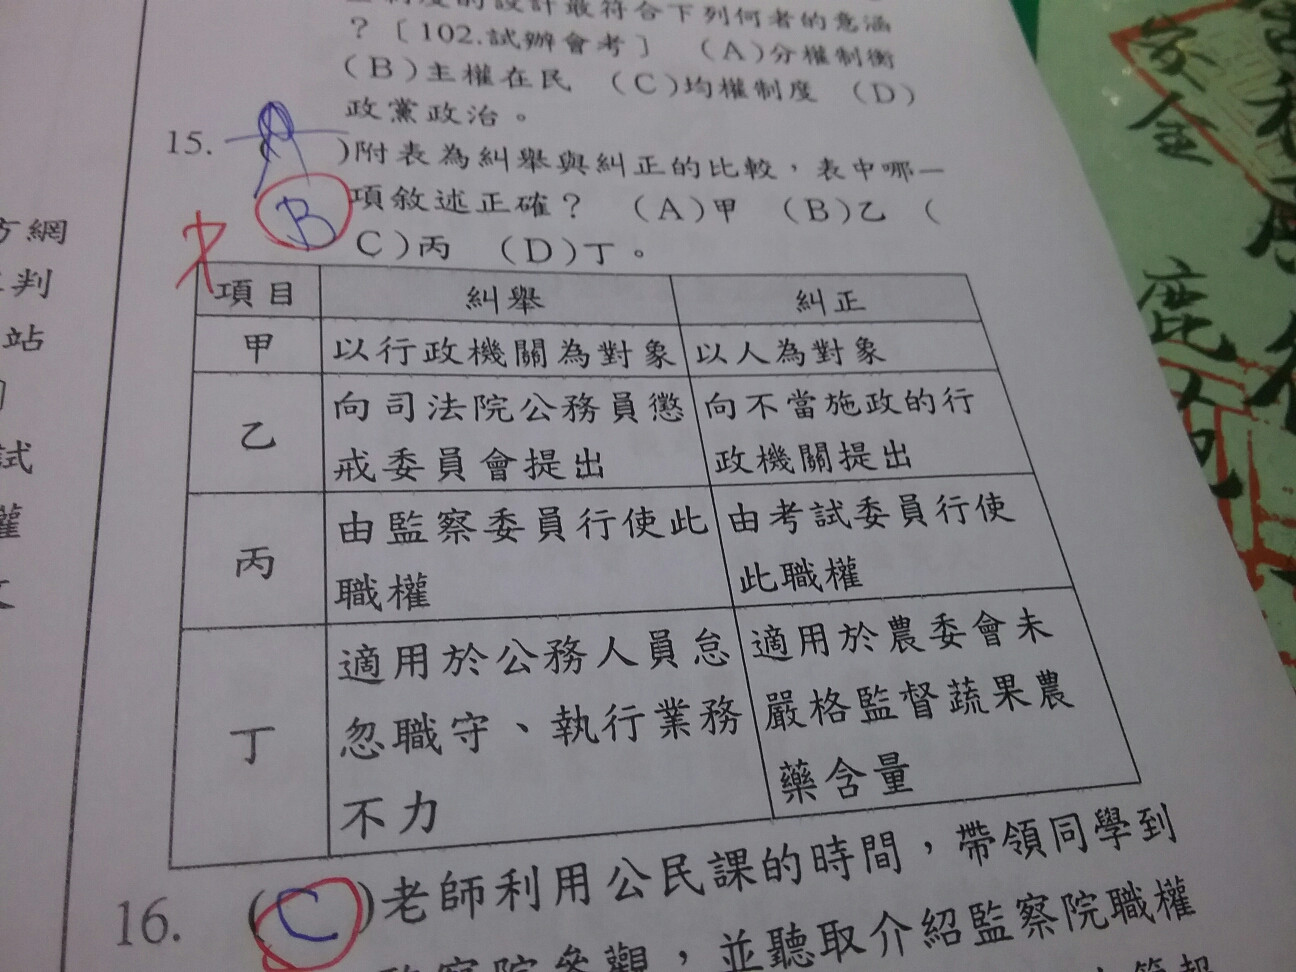 制度的設計最符合下列何者的意涵
？〔102.試辦會考〕 (A)分權制衡
(B)主權在民 (C)均權制度 (D)
政黨政治。
15. ( )附表為糾舉與糾正的比較，表中哪一
B 項敘述正確？ (A)甲 (B)乙 (
C)丙 (D)丁。
項目 糾舉 糾正
甲 以行政機關為對象 以人為對象
乙 向司法院公務員懲戒委員會提出 向不當施政的行政機關提出
丙 由監察委員行使此職權 由考試委員行使此職權
丁 適用於公務人員怠忽職守、執行業務不力 適用於農委會未嚴格監督蔬果農藥含量
16. (C)老師利用公民課的時間，帶領同學到
監察院參觀，並聽取介紹監察院職權
方網
判
站
試
權
家全
鹿